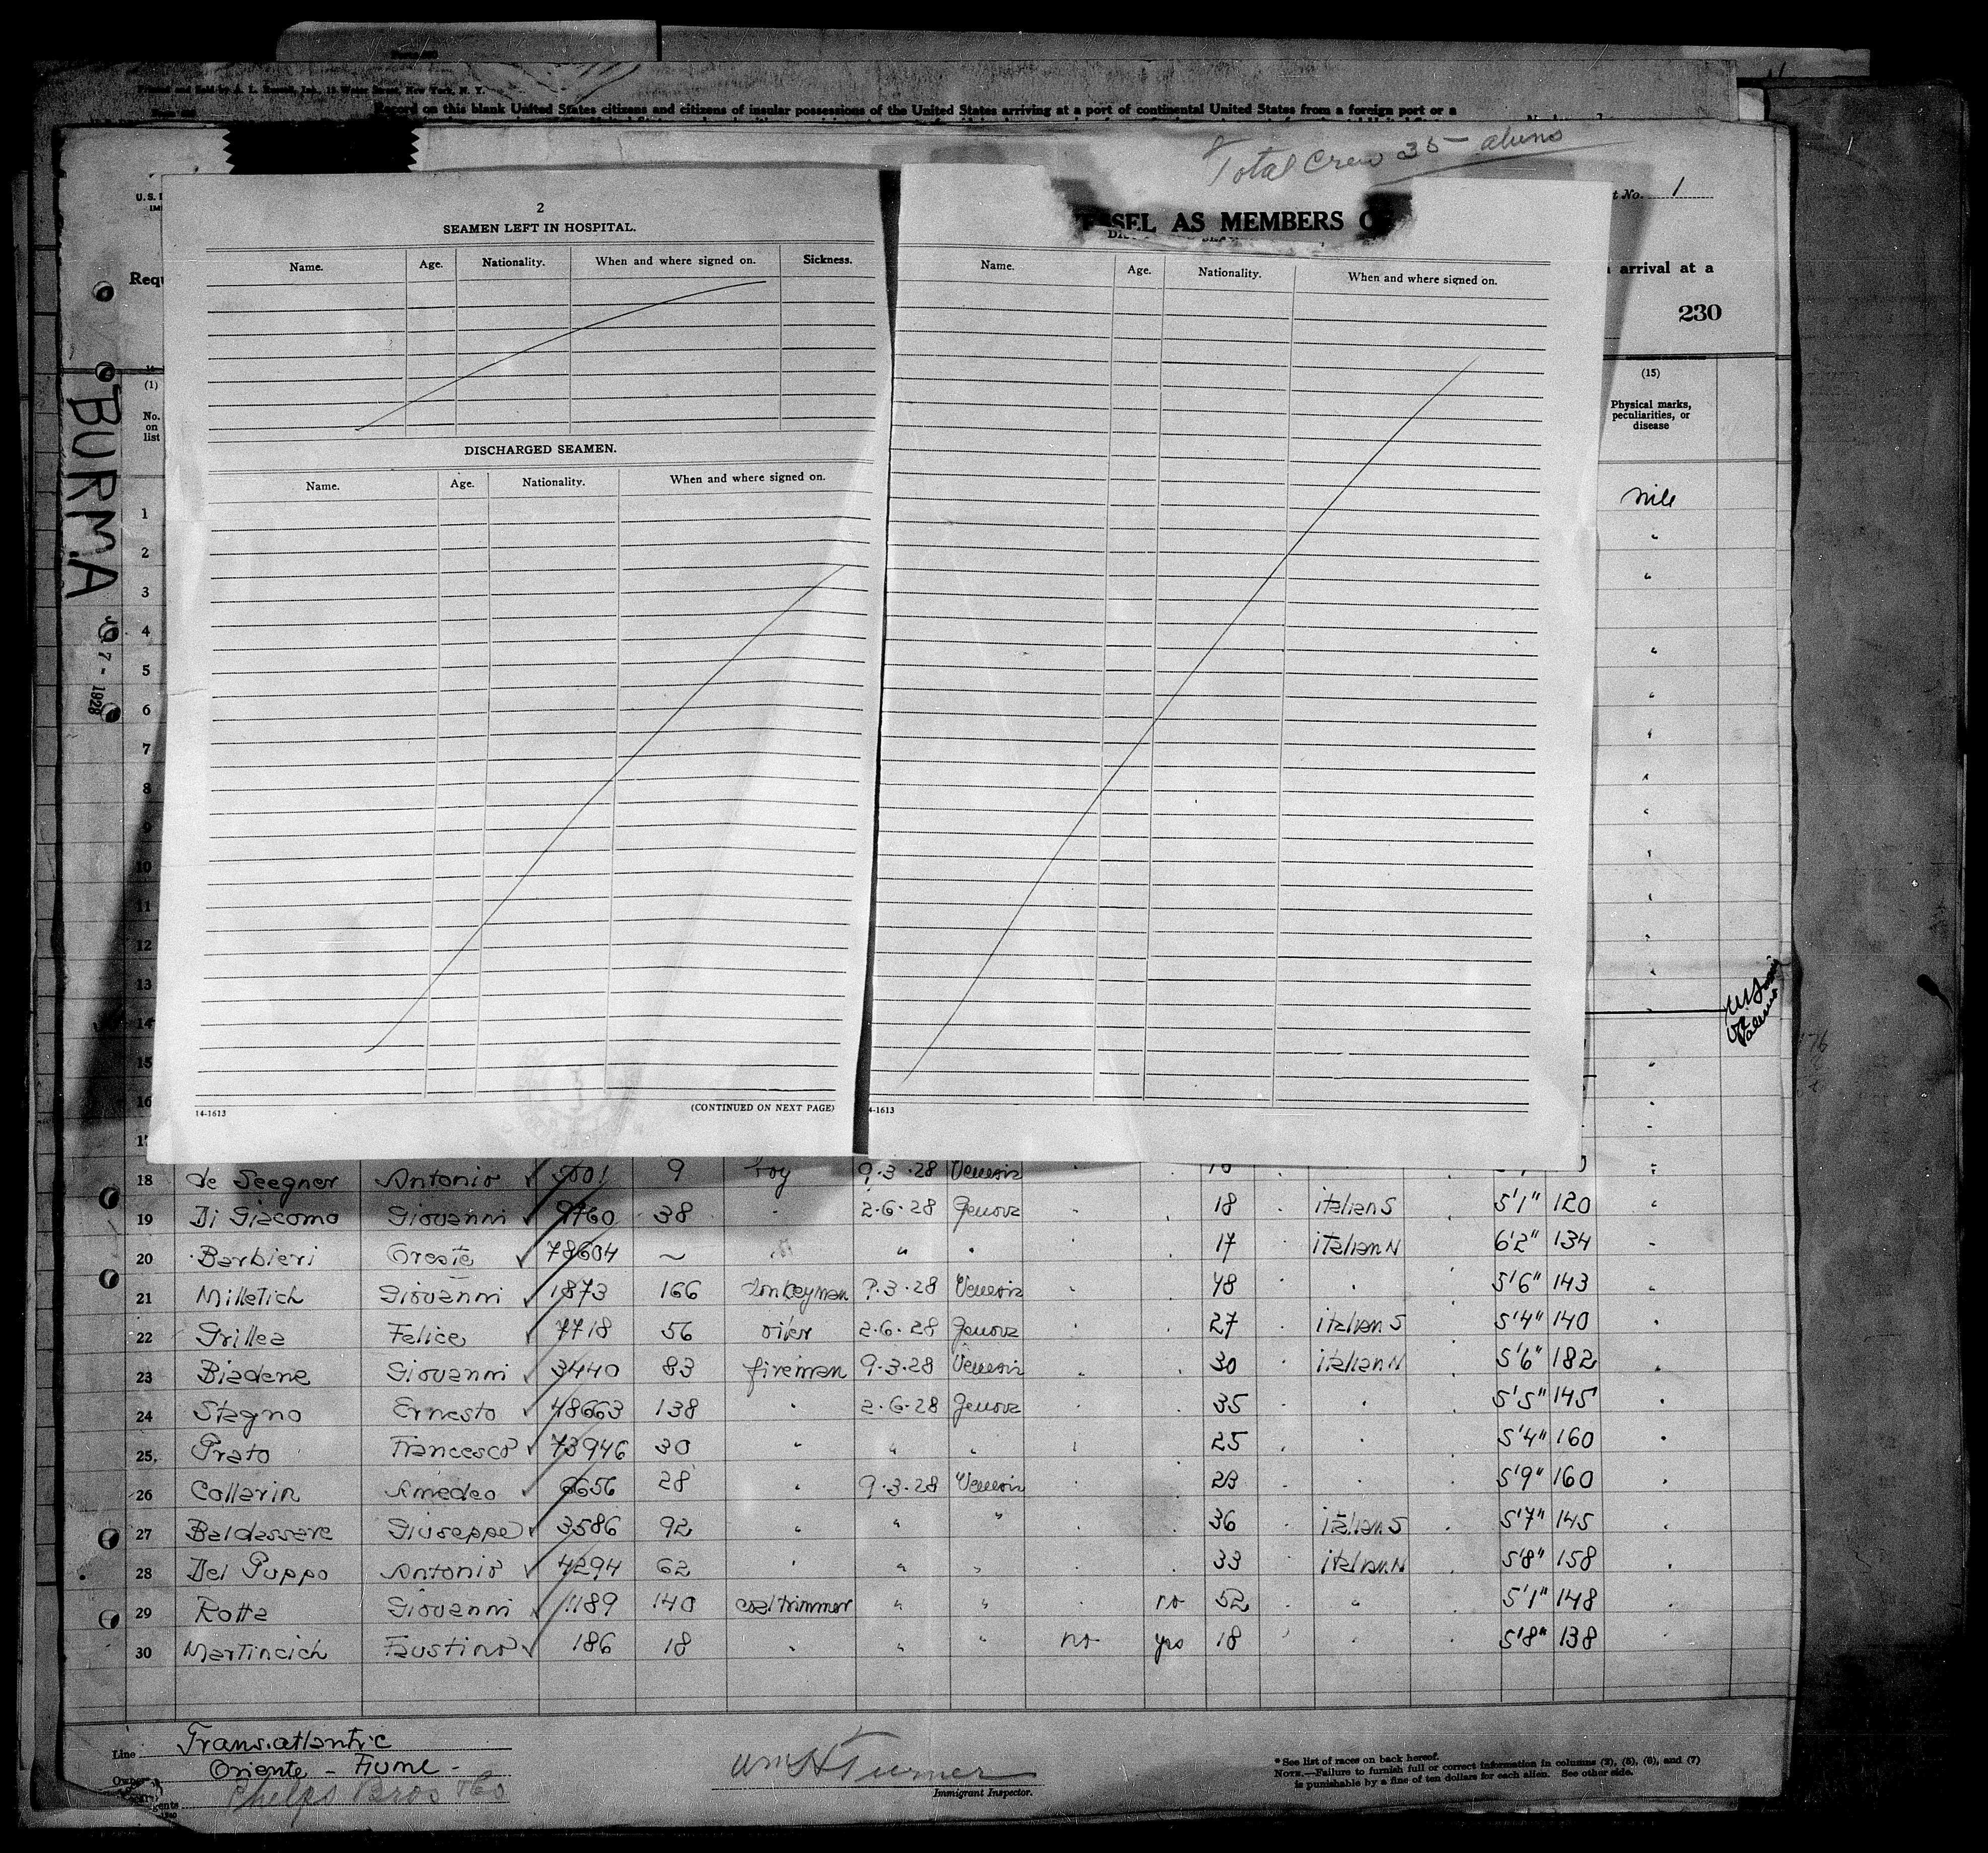 Printed and Sold by A. L. Russell, Inc., 15 Water Street, New York, N. Y.
Record on this blank United States citizens and citizens of insular possessions of the United States arriving at a port of continental United States from a foreign port or a
Total Crew 35 - aliens
U.S.
t No. 1
SEL AS MEMBERS O
arrival at a
230
BURMA
7 - 1928
2
SEAMEN LEFT IN HOSPITAL.
Name. Age. Nationality. When and where signed on. Sickness.
DISCHARGED SEAMEN.
Name. Age. Nationality. When and where signed on.
14-1613
(CONTINUED ON NEXT PAGE)
Name. Age. Nationality. When and where signed on.
4-1613
(1)
No.
on
list
(15)
Physical marks,
peculiarities, or
disease
1
2
3
4
5
6
7
8
9
10
11
12
13
14
15
16
18 de Seegner Antonio 9 boy 9.3.28
19 Di Giacomo Giovanni 9760 38 2.6.28 Genova 18 italian S 5'1" 120
20 Barbieri Oreste 78604 " 17 italian N 6'2" 134
21 Milletich Giovanni 1873 166 donkeyman 9.3.28 48 5'6" 143
22 Grillea Felice 7718 56 oiler 2.6.28 Genova 27 italian S 5'4" 140
23 Biadene Giovanni 3440 83 fireman 9.3.28 30 italian N 5'6" 182
24 Stagno Ernesto 48663 138 " 2.6.28 Genova 35 " 5'5" 145
25. Prato Francesco 73946 30 " " " 25 5'4" 160
26 Collarin Amedeo 6656 28 " 9.3.28 23 5'9" 160
27 Baldassare Giuseppe 3586 92 " " " 36 italian S 5'7" 145
28 Del Puppo Antonio 4294 62 " " " 33 italian N 5'8" 158
29 Rotta Giovanni 1189 140 coaltrimmer " " no 52 " 5'1" 148
30 Martincich Faustino 186 18 " " " no yes 18 " 5'8" 138
Line Transatlantic
Oriente - Fiume -
Phelps Bros & Co
Wm H Turner
Immigrant Inspector.
* See list of races on back hereof.
NOTE.—Failure to furnish full or correct information in columns (2), (5), (6), and (7)
is punishable by a fine of ten dollars for each alien. See other side.